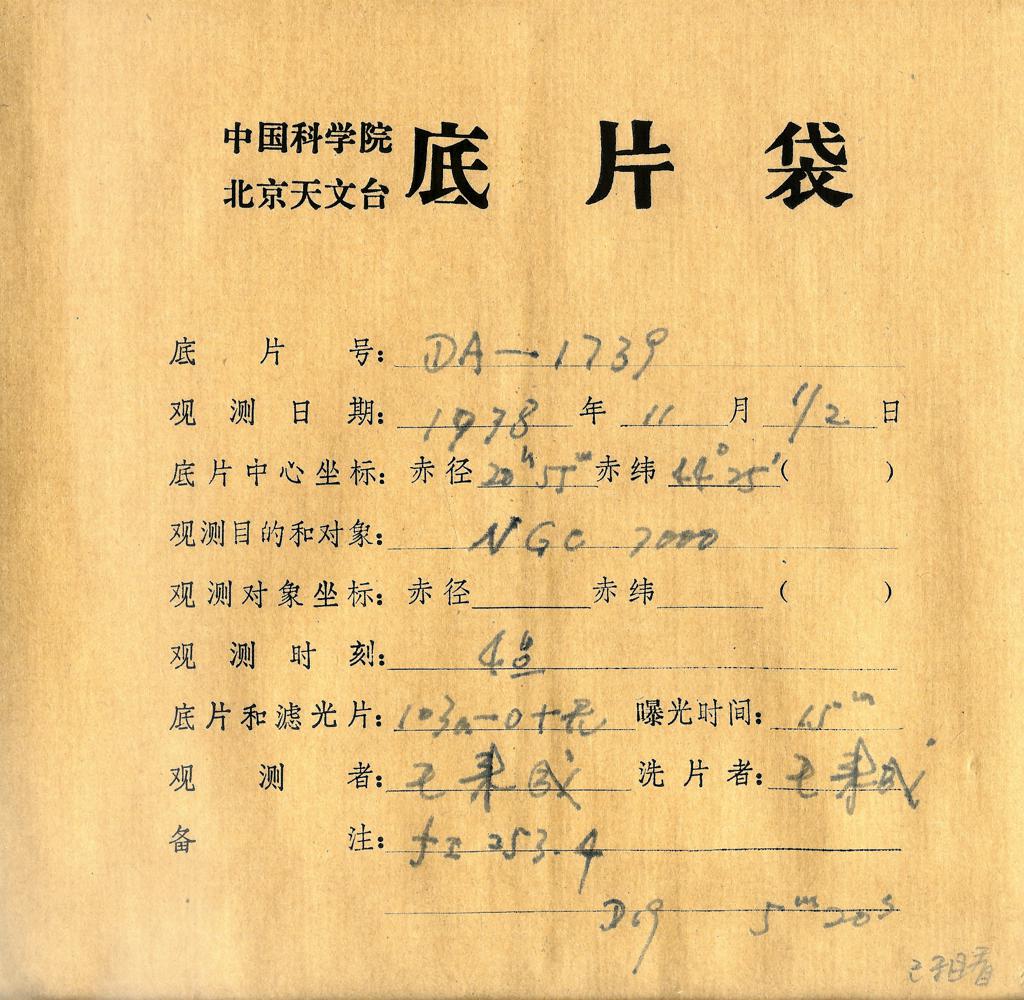 中国科学院
北京天文台 底片袋
底片号: DA-1739
观测日期: 1978 年 11 月 1/2 日
底片中心坐标: 赤径 20h 55m 赤纬 44° 25' ( )
观测目的和对象: NGC 7000
观测对象坐标: 赤径 赤纬 ( )
观测时刻: 4h
底片和滤光片: 103a-O+无 曝光时间: 15m
观测者: 王 洗片者: 王
备注: f= 253.4
D19 5m 20s